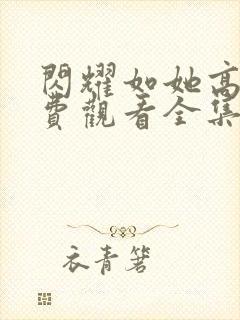 閃耀如她高
費觀看全集
衣青箬